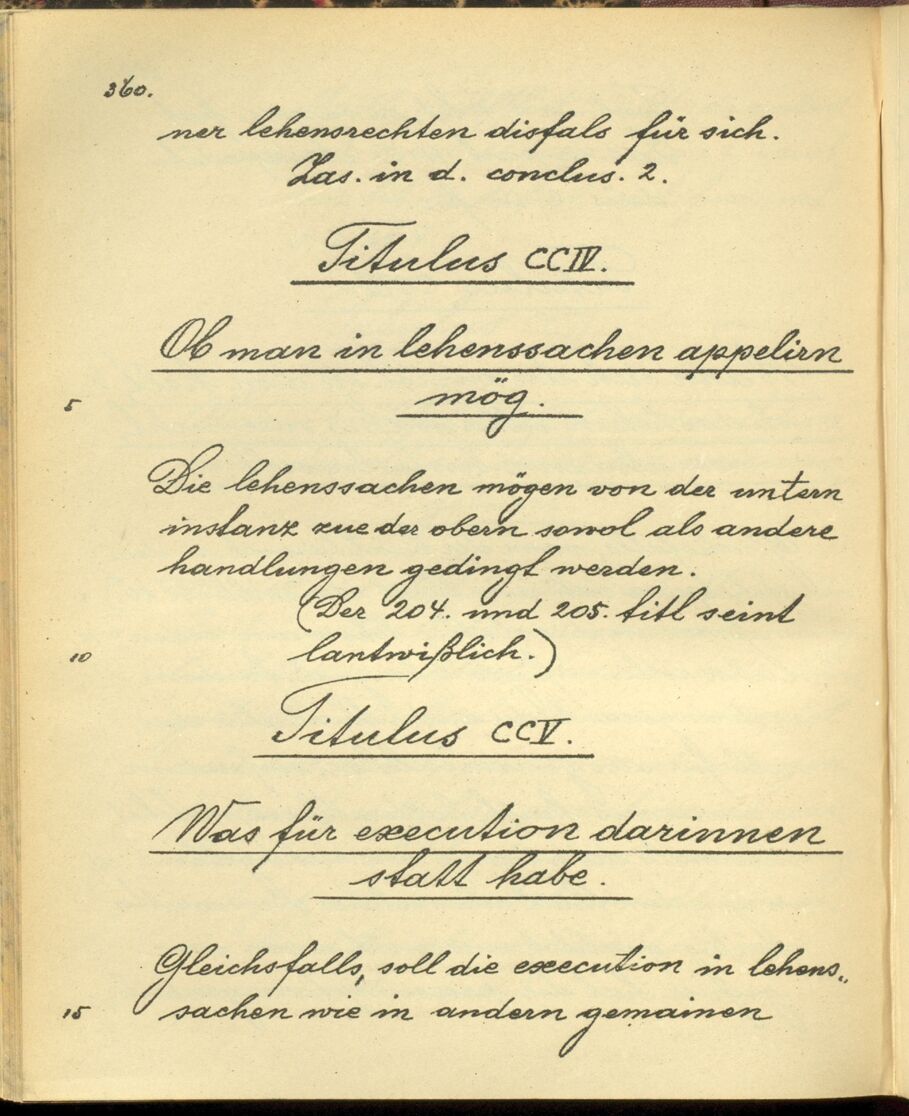 360.
ner lehensrechten disfals für sich.
Zas. in d. conclus. 2.
Titulus CCIV.
Ob man in lehenssachen appelirn
5 mög.
Die lehenssachen mögen von der untern
instanz zue der obern sowol als andere
handlungen gedingt werden.
(Der 204. und 205. titl seint
10 lantwißlich.)
Titulus CCV.
Was für execution darinnen
statt habe.
Gleichsfalls, soll die execution in lehens„
15 sachen wie in andern gemainen